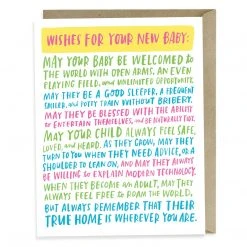 WISHES FOR YOUR NEW BABY:
MAY YOUR BABY BE WELCOMED TO
THE WORLD WITH OPEN ARMS, AN EVEN
PLAYING FIELD, AND UNLIMITED OPPORTUNITY.
MAY THEY BE A GOOD SLEEPER, A FREQUENT
SMILER, AND POTTY TRAIN WITHOUT BRIBERY.
MAY THEY BE BLESSED WITH THE ABILITY
TO ENTERTAIN THEMSELVES, AND BE NATURALLY FUNNY.
MAY YOUR CHILD ALWAYS FEEL SAFE,
LOVED, AND HEARD. AS THEY GROW, MAY THEY
TURN TO YOU WHEN THEY NEED ADVICE, OR A
SHOULDER TO LEAN ON, AND MAY THEY ALWAYS
BE WILLING TO EXPLAIN MODERN TECHNOLOGY.
WHEN THEY BECOME AN ADULT, MAY THEY
ALWAYS FEEL FREE TO ROAM THE WORLD,
BUT ALWAYS REMEMBER THAT THEIR
TRUE HOME IS WHEREVER YOU ARE.